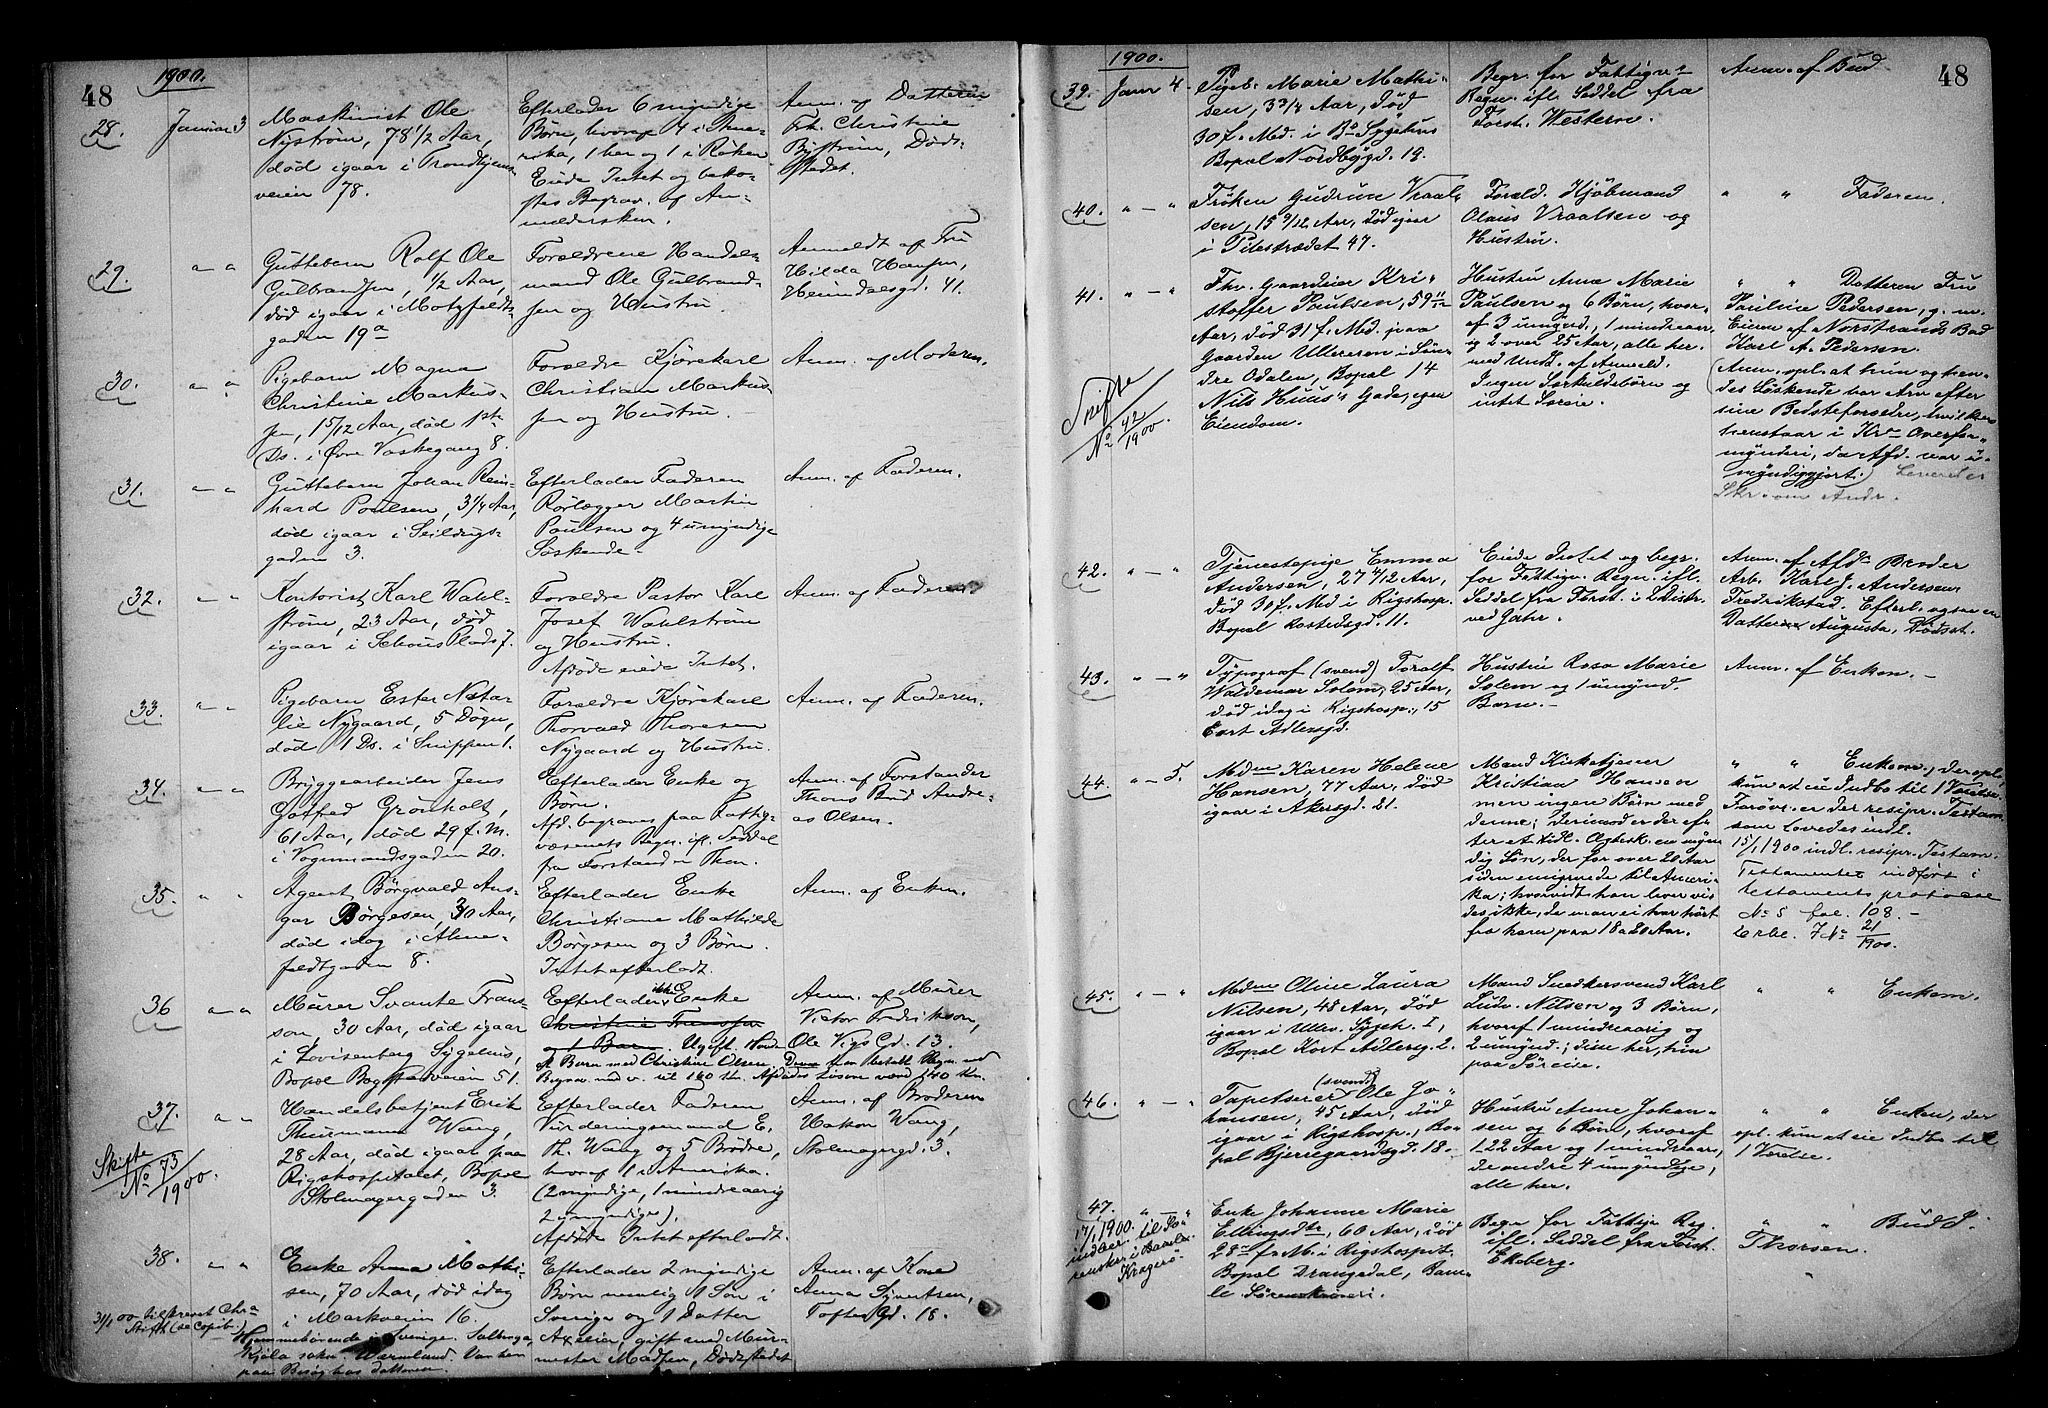 48
1900.
28. Januar 3
Maskinist Ole
Nystrøm, 78 1/2 Aar,
død igaar i Trondhjems-
veien 78.
Efterlader 6 myndige
Børn, hvoraf 4 i Ame-
rika, 1 her og 1 i Røken
Eiede Intet og beko-
stes Begrav. af An-
meldersken.
Anm. af Datteren
Frk. Christine
Nystrøm, Døds-
stedet.
29. " "
Guttebarn Rolf Ole
Gulbrandsen, 1/2 Aar,
død igaar i Motzfeldts-
gaden 19a
Forældrene Handels-
mand Ole Gulbrand-
sen og Hustru.
Anmeldt af Fru
Hilda Hansen,
Heimdalsgd. 41.
30. " "
Pigebarn Magna
Christine Markus-
sen, 1 5/12 Aar, død 1ste
Ds. i Øvre Vaskegang 8.
Forældre Kjørekarl
Christian Markus-
sen og Hustru.
Anm. af Moderen.
31. " "
Guttebarn Johan Rein-
hard Poulsen, 3 1/4 Aar,
død igaar i Seildugs-
gaden 3.
Efterlader Faderen
Rørlægger Martin
Poulsen og 4 umyndige
Søskende.
Anm. af Faderen.
32. " "
Kontorist Karl Wahl-
strøm, 23 Aar, død
igaar i Schous Plads 7.
Forældre Pastor Karl
Josef Wahlstrøm
og Hustru.
Afdøde eiede Intet.
Anm. af Faderen
33. " "
Pigebarn Ester Nata-
lie Nygaard, 5 Døgn,
død 1 Ds. i Snippen 1.
Forældre Kjørekarl
Thorvald Thoresen
Nygaard og Hustru.
Anm. af Faderen.
34. " "
Bryggearbeider Jens
Gotfred Grønholt,
61 Aar, død 29 f. M.
i Vognmandsgaden 20.
Efterlader Enke og
Børn.
Afd. begraves paa Fattig-
væsenets Regn. ifl. Seddel
fra Forstander Thon.
Anm. af Forstander
Thons Bud Andre-
as Olsen.
35. " "
Agent Børgvald Ans-
gar Børgesen, 30 Aar,
død idag i Alme-
feldtgaden 8.
Efterlader Enke
Christiane Mathilde
Børgesen og 3 Børn.
Intet efterladt.
Anm. af Enken.
36 " "
Murer Svante Fran-
son, 30 Aar, død igaar
i Lovisenberg Sygehus,
Bopæl Bogstadveien 51.
Efterlader ikke Enke
Christine Fransson
og 1 Barn. Ugift. Havde
et Barn med Christine Olsen. Denne har betalt Regn. ved
Begrav. med v. til 160 Kr. Afdødes Løsøre værd 140 Kr.
Anm. af Murer
Victor Fredrikson,
Ole Vigs Gd. 13.
37. " "
Skifte
No 73/1900.
Handelsbetjent Erik
Thurmann Wang,
28 Aar, død igaar paa
Rigshospitalet, Bopæl
Stolmagergaden 3.
Efterlader Faderen
Vurderingsmand E.
Th. Wang og 5 Brødre,
hvoraf 1 i Amerika.
(2 myndige, 1 mindreaarig
2 umyndige).
Afdøde Intet efterladt.
Anm. af Broderen
Hakon Wang,
Stolmagergd. 3.
38. " "
Enke Anna Mathi-
sen, 70 Aar, død idag
i Markveien 16.
Hjemmehørende i Sverige.
Wermland. Var her
paa Besøg hos datteren
Efterlader 2 myndige
Børn nemlig 1 Søn i
Sverige og 1 Datter
gift med Mur-
mester Madsen, Dødsstedet
Anm. af Kone
Anna Syvertsen,
Toftes Gd. 18.
48
1900.
39. Janr 4
Pigeb. Marie Mathi-
sen, 3 3/4 Aar, død
30 f. Md. i Bs Sygehus
Bopæl Nordbygd. 19.
Begr. for Fattigv.s
Regn. ifl. Seddel fra
Forst. Western.
Anm. af Bud
40. " - "
Frøken Gudrun Vraal-
sen, 15 9/12 Aar, død igaar
i Pilestrædet 47.
Foræld. Kjøbmand
Olaus Vraalsen og
Hustru.
" " Faderen.
41. " - "
Skifte
No 42/1900.
Fhv. Gaardeier Kri-
stoffer Paulsen, 59 11/12
Aar, død 31 f. Md. paa
Gaarden Ullereren i Søn-
dre Odalen, Bopæl 14
Nils Huus's Gade, egen
Eiendom.
Hustru Anne Marie
Paulsen og 6 Børn, hvor-
af 3 umynd., 1 mindreaar-
ig 2 over 25 Aar, alle her.
ved Undt. af Anmeld.
Ingen Særkuldebørn og
intet Særeie.
" " Datteren Fru
Pauline Pedersen, g. m.
Eieren af Norstrands Bad
Karl A. Pedersen.
(Anm. opl. at hun og hen-
des Søskende har Arv efter
sine Bedsteforældre, hvilken
henstaar i Kra Overfor-
mynderi, da Afd. var u-
myndiggjort.)
42. " - "
Tjenestepige Emma
Andersen, 27 4/12 Aar,
død 30 f. Md i Rigshosp.
Bopæl Rostedsgd. 11.
Eiede Intet og begr.
for Fattigv. Regn. ifl.
Seddel fra Forst. i 2 Distr.
ved Jahr.
Anm. af Afdn Broder
Arb. Karl J. Andersen
Fredrikstad. Efterl. ogsaa en
Datter Augusta, Dødsst.
43. " - "
Typograf (svend) Toralf
Waldemar Solem, 25 Aar,
død idag i Rigshosp., 15
Cort Adlersgd.
Hustru Rosa Marie
Solem og 1 umynd.
Barn.-
Anm. af Enken.-
44. " - 5.
Mdme Karen Helene
Hansen, 77 Aar, død
igaar i Akersgd. 21.
Mand Kirketjener
Kristian Hansen
men ingen Børn med
denne; derimod er der ef-
ter et tidl. Ægtesk. en myn-
dig Søn, der for over 20 Aar
siden emigrerede til Ameri-
ka; hvorvidt han lever vi-
des ikke, da man ei har hørt
fra ham paa 18 a 20 Aar.
" " Enkem., der opl.
kun at eie Indbo til 1 Værelse.
Forøv. er der resipr. Testam.
som lovedes indl.
15/1 1900 indl. resipr. Testam.
Testamentet indført i
testaments protocol
No 5 fol. 108.-
7 No 21/1900.
45. " - "
Mdme Oline Laura
Nilsen, 48 Aar, død
igaar i Ullev. Sygeh. I,
Bopæl Kort Adlersg. 2.
Mand Snedkersvend Karl
Ludv. Nilsen og 3 Børn,
hvoraf 1 mindreaarig og
2 umynd.; disse her, hin
paa Søreise.
" " Enkem.
46. " - "
Tapetserer (svend) Ole Jo-
hansen, 45 Aar, død
igaar i Rigshosp., Bo-
pæl Bjerregaardsgd. 18.
Hustru Anne Johan-
sen og 6 Børn, hvoraf
1 22 Aar og 1 mindreaar,
de andre 4 umyndige,
alle her.
" " Enken, der
opl. kun at eie Indbo til
1 Værelse.
47. " - "
17/1 1900.
Kragerø
Enke Johanne Marie
Ellingsdtr, 60 Aar, død
28de f. M. i Rigshospit.
Bopæl Drangedal, Bam-
le Sørenskriveri.
Begr. for Fattigv. Reg.
ifl. Seddel fra Forst.
Ekeberg.
" " Bud J.
Thorsen.